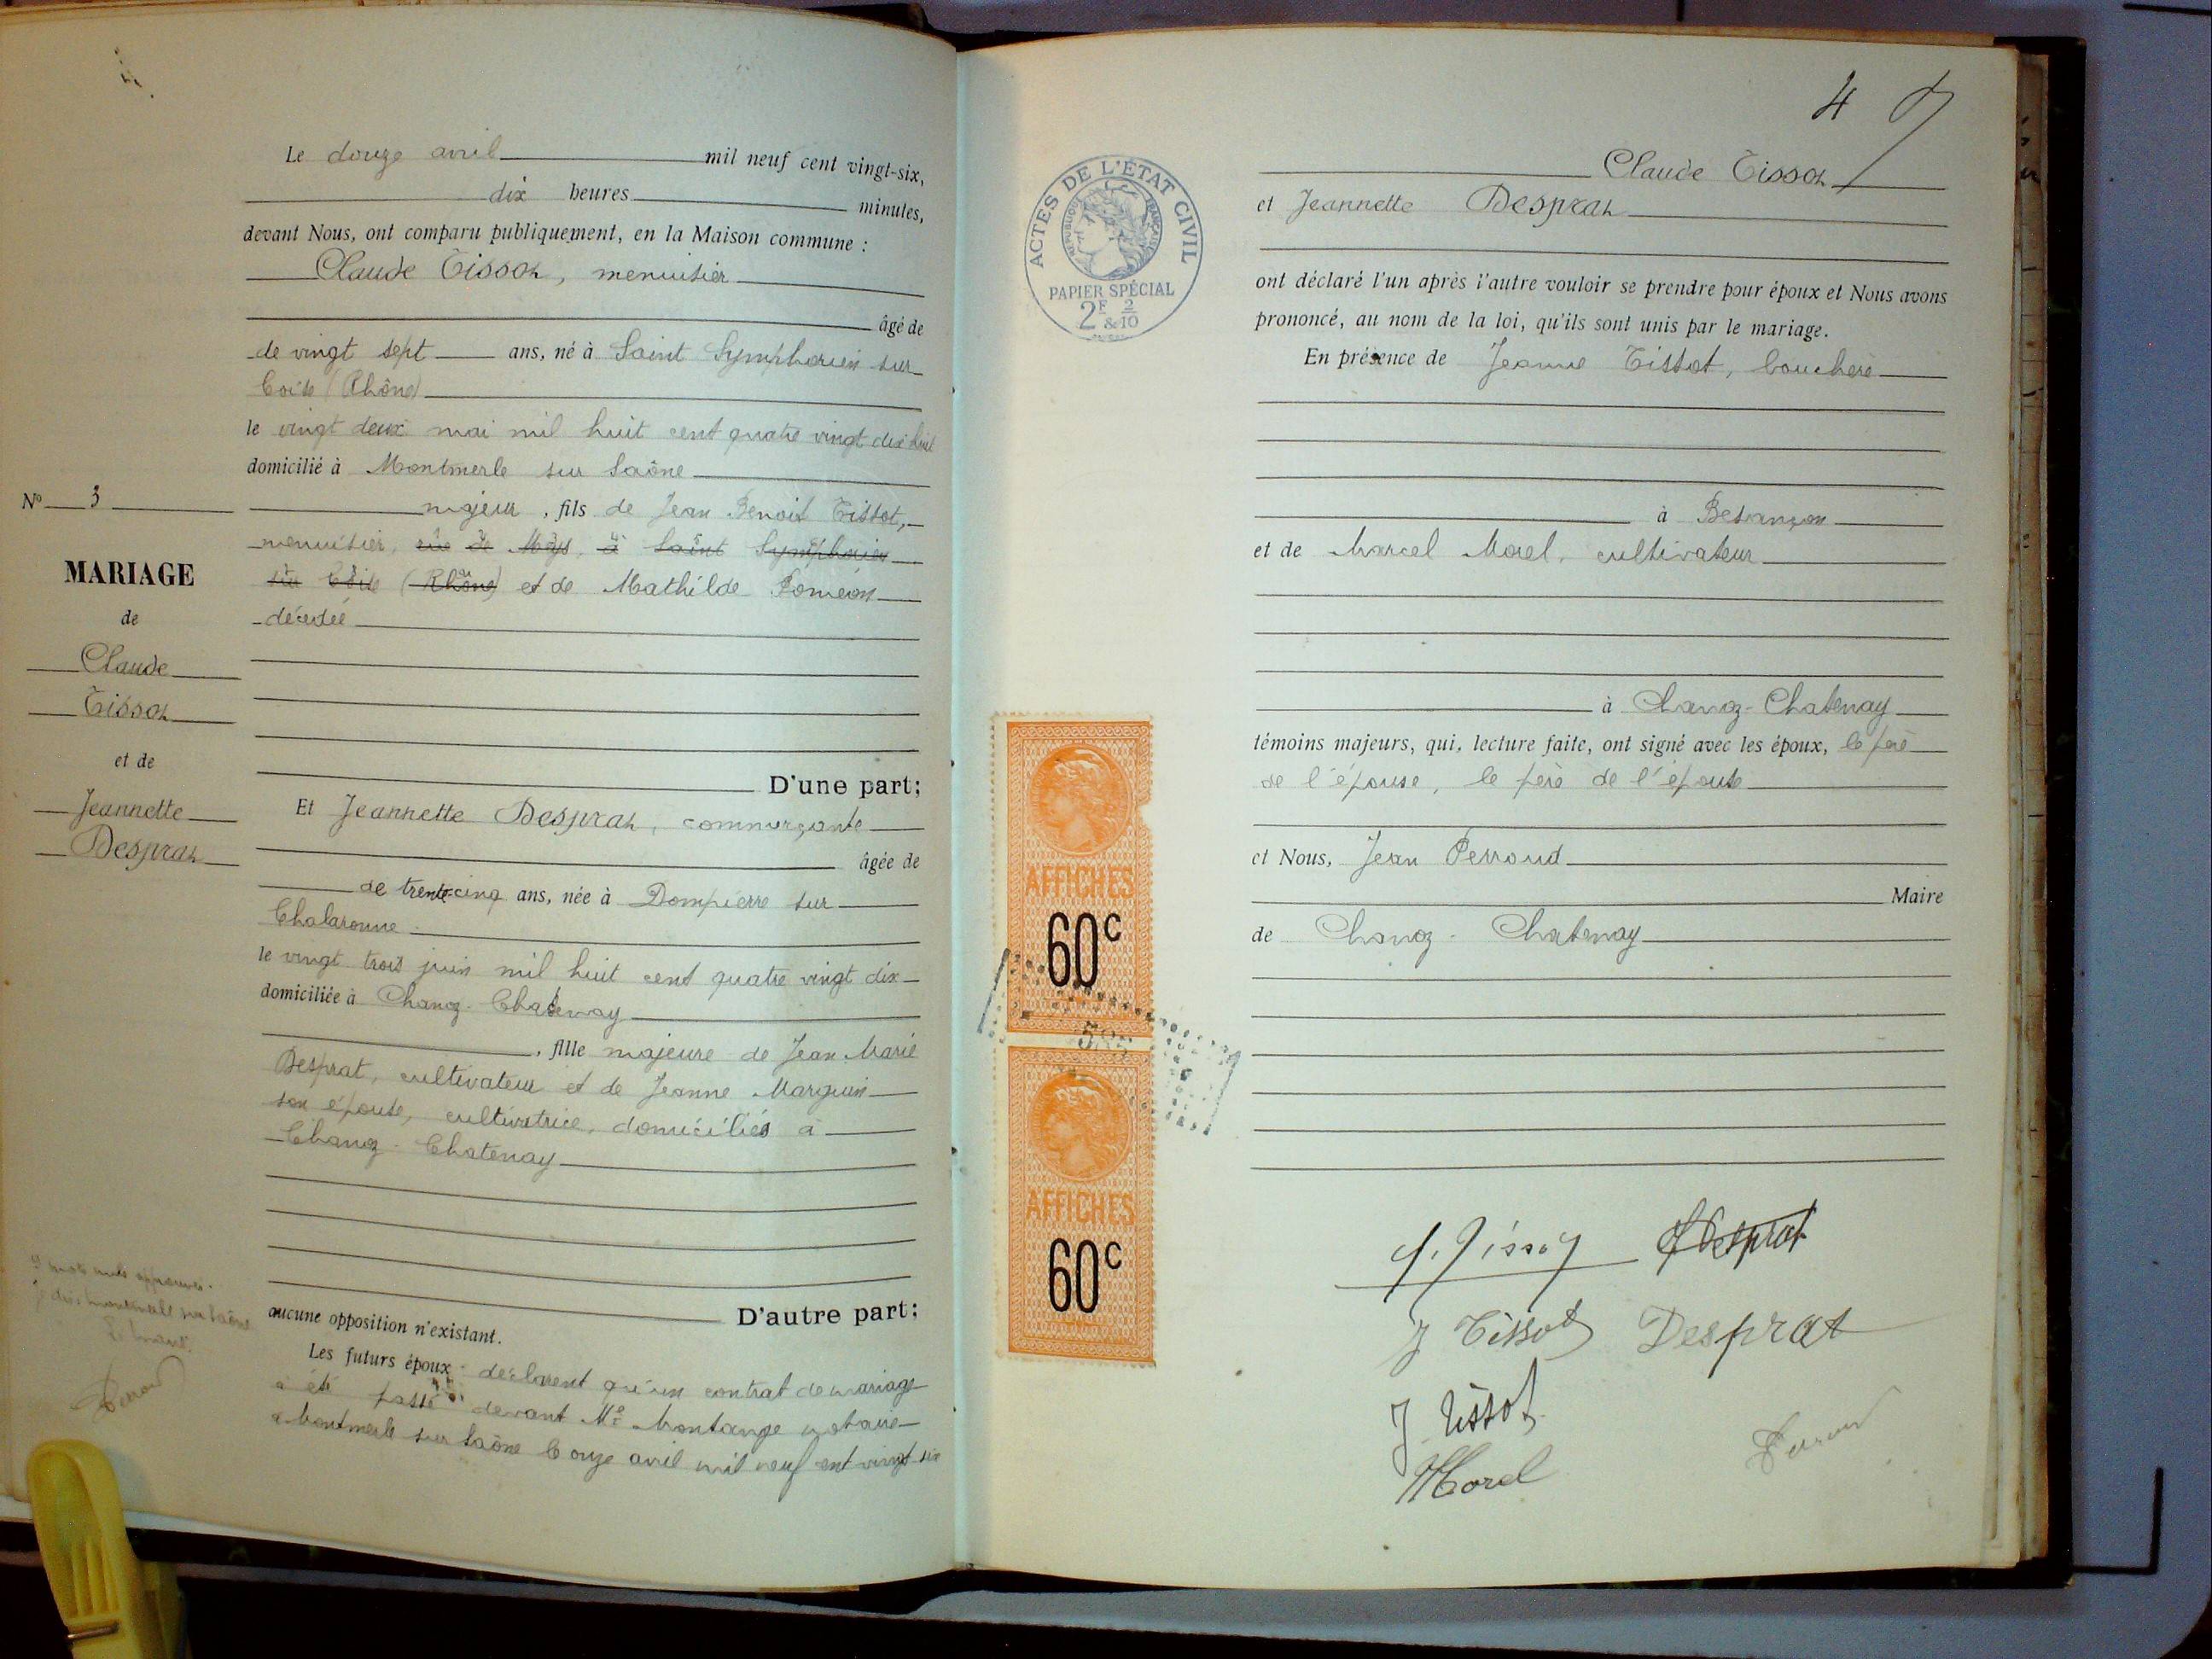 Le douze avril mil neuf cent vingt-six,
dix heures minutes,
devant Nous, ont comparu publiquement, en la Maison commune :
Claude Tissot, menuisier
âgé de
de vingt sept ans, né à Saint Symphorien sur
Coise (Rhône)
le vingt deux mai mil huit cent quatre vingt dix huit
domicilié à Montmerle sur Saône
majeur, fils de Jean Benoit Tissot,
menuisier, rue de Meys, à Saint Symphorien
sur Coise (Rhône) et de Mathilde Poméon
décédée
D'une part;
Et Jeannette Desprat, commerçante
âgée de
de trente-cinq ans, née à Dompierre sur
Chalaronne
le vingt trois juin mil huit cent quatre vingt dix
domiciliée à Chanoz-Chatenay
, fille majeure de Jean Marie
Desprat, cultivateur et de Jeanne Marguin
son épouse, cultivatrice, domiciliés à
Chanoz-Chatenay
D'autre part;
aucune opposition n'existant.
Les futurs époux déclarent qu'un contrat de mariage
a été passé devant Me Montange notaire
à Montmerle sur Saône le onze avril mil neuf cent vingt six
No 3
MARIAGE
de
Claude
Tissot
et de
Jeannette
Desprat
mots nuls approuvés.
Montmerle sur Saône
Perroud
4
ACTES DE L'ÉTAT CIVIL
RÉPUBLIQUE FRANÇAISE
PAPIER SPÉCIAL
2F & 2/10
Claude Tissot
et Jeannette Desprat
ont déclaré l'un après l'autre vouloir se prendre pour époux et Nous avons
prononcé, au nom de la loi, qu'ils sont unis par le mariage.
En présence de Jeanne Tissot, bouchère
à Besançon
et de Marcel Morel, cultivateur
à Chanoz-Chatenay
témoins majeurs, qui, lecture faite, ont signé avec les époux, le père
de l'épouse, le père de l'épouse
et Nous, Jean Perroud
Maire
de Chanoz-Chatenay
AFFICHES
60c
AFFICHES
60c
C. Tissot J Desprat
J Tissot Desprat
J. Tissot
M Morel Perroud